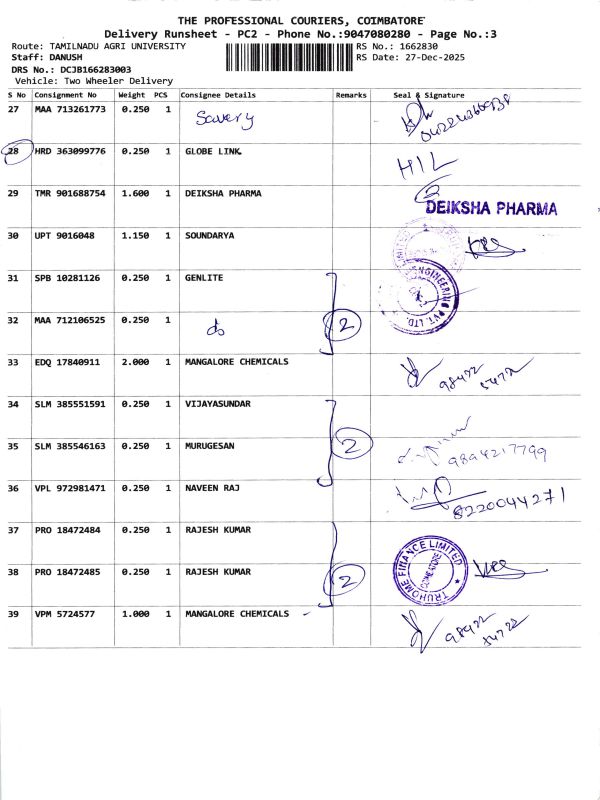 THE PROFESSIONAL COURIERS, COIMBATORE
Delivery Runsheet - PC2 - Phone No.:9047080280 - Page No.:3
Route: TAMILNADU AGRI UNIVERSITY RS No.: 1662830
Staff: DANUSH RS Date: 27-Dec-2025
DRS No.: DCJB166283003
Vehicle: Two Wheeler Delivery
S No Consignment No Weight PCS Consignee Details Remarks Seal & Signature
27 MAA 713261773 0.250 1
28 HRD 363099776 0.250 1 GLOBE LINK HIL
29 TMR 901688754 1.600 1 DEIKSHA PHARMA 2
DEIKSHA PHARMA
30 UPT 9016048 1.150 1 SOUNDARYA
31 SPB 10281126 0.250 1 GENLITE ENGINEERING PVT. LTD.
32 MAA 712106525 0.250 1 do 2
33 EDQ 17840911 2.000 1 MANGALORE CHEMICALS 98422
34 SLM 385551591 0.250 1 VIJAYASUNDAR
35 SLM 385546163 0.250 1 MURUGESAN 2 9894217799
36 VPL 972981471 0.250 1 NAVEEN RAJ 8220044271
37 PRO 18472484 0.250 1 RAJESH KUMAR TRUHOME FINANCE LIMITED
COIMBATORE
38 PRO 18472485 0.250 1 RAJESH KUMAR 2
39 VPM 5724577 1.000 1 MANGALORE CHEMICALS 98422
54722